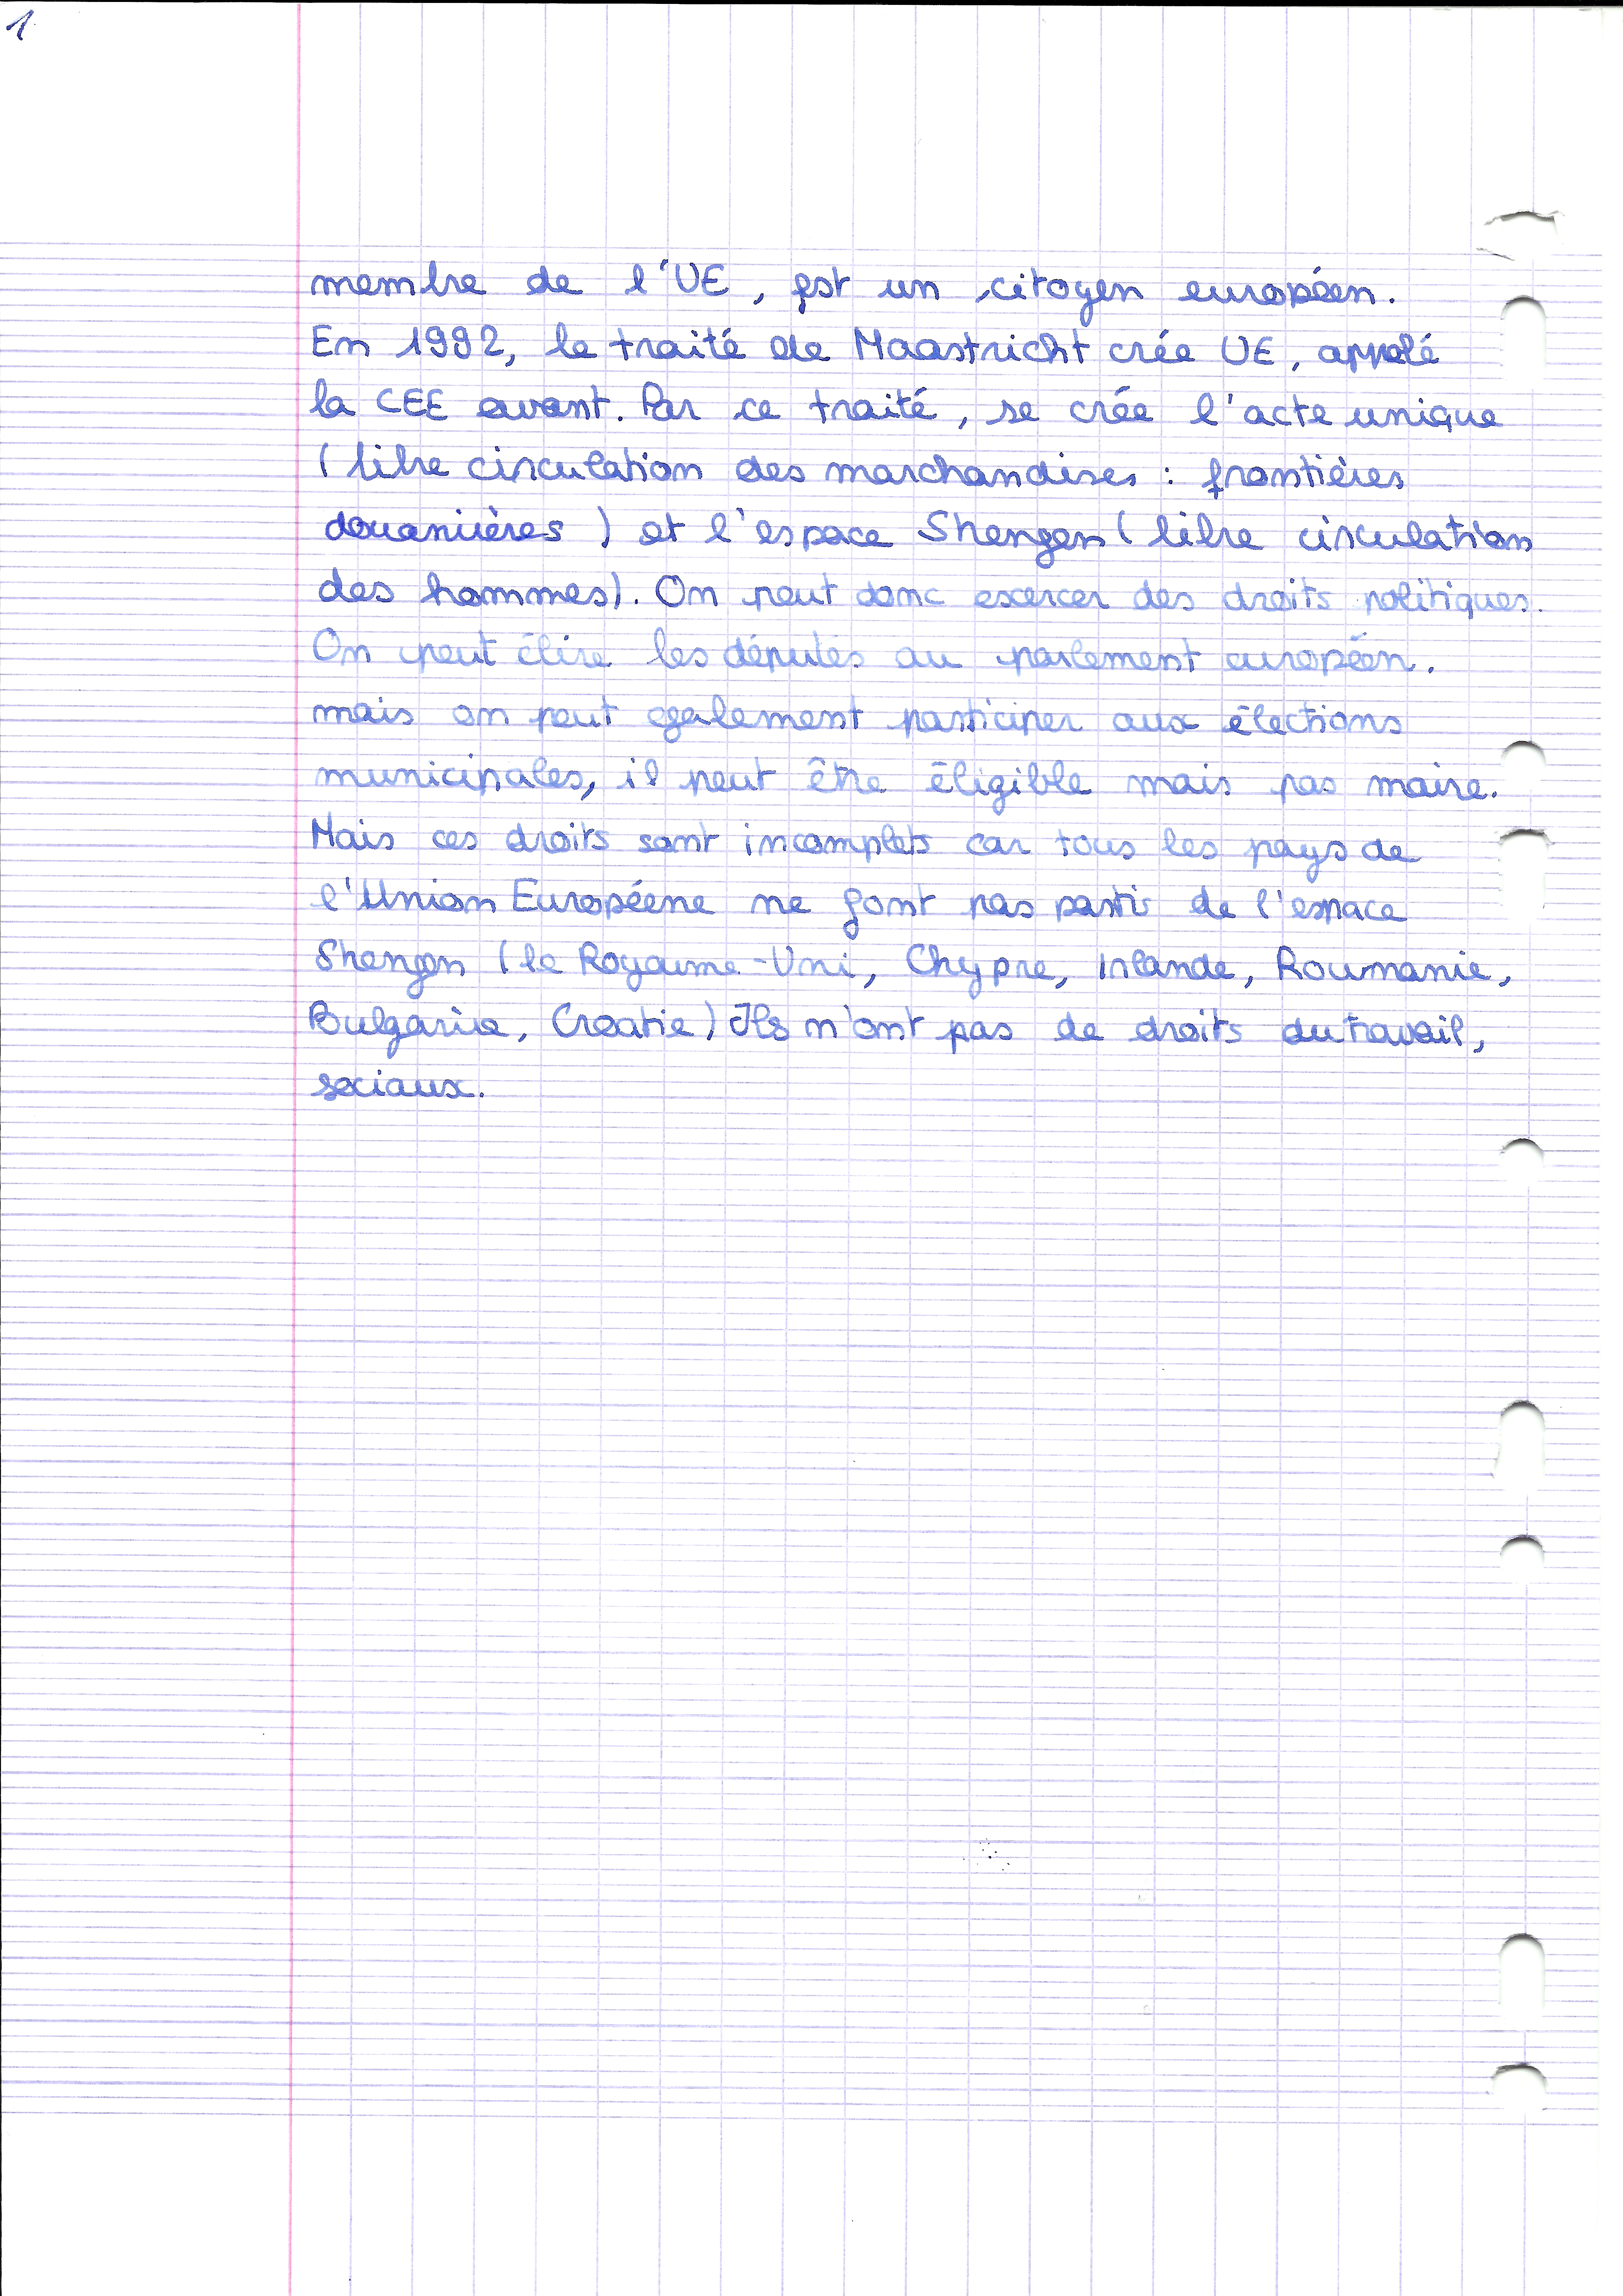 1
membre de l'UE, est un citoyen européen.
En 1992, le traité de Maastricht crée UE, appelé
la CEE avant. Par ce traité, se crée l'acte unique
(libre circulation des marchandises : frontières
douanières) et l'espace Shengen (libre circulation
des hommes). On peut donc excercer des droits politiques.
On peut élire les députés au parlement européen.
mais on peut egalement participer aux élections
municipales, il peut être éligible mais pas maire.
Mais ces droits sont incomplets car tous les pays de
l'Union Européene ne font pas partis de l'espace
Shengen (le Royaume-Uni, Chypre, Irlande, Roumanie,
Bulgarie, Croatie) Ils n'ont pas de droits du travail,
sociaux.